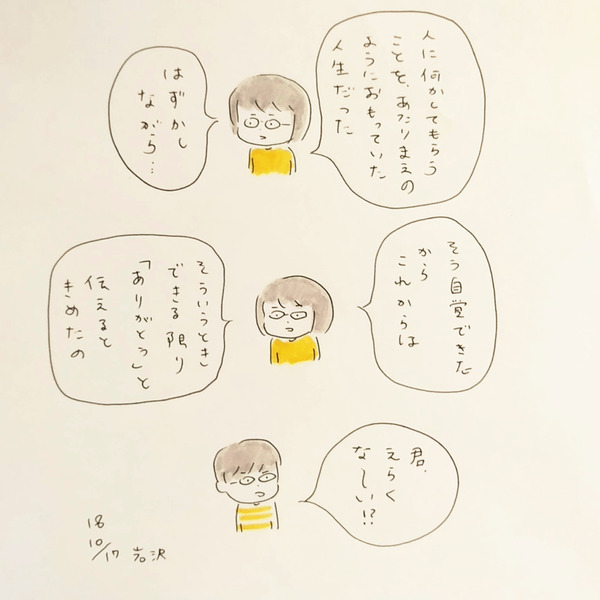 人に何かしてもらう
ことを、あたりまえの
ようにおもっていた
人生だった
はずかし
ながら…
そう自覚できた
から
これからは
そういうとき
できる限り
「ありがとう」と
伝えると
きめたの
君、
えらく
なしい!?
18
10/17 岩沢